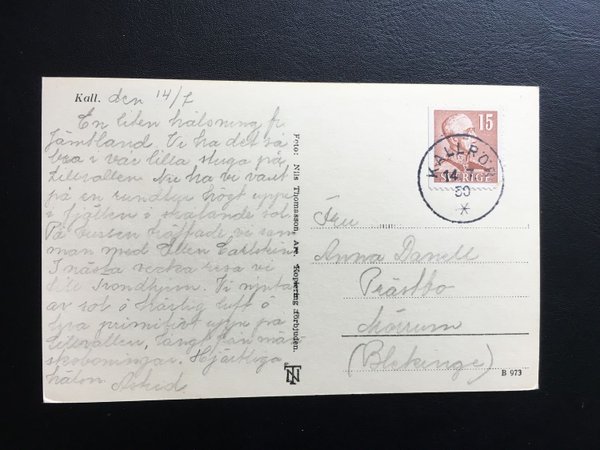 Kall. den 14/7
En liten hälsning fr
Jämtland. Vi ha det så
bra i vår lilla stuga på
Nu ha vi varit
på en rundtur högt uppe
i fjällen i strålande sol.
På bussen träffade vi
man med Ellen
I nästa vecka resa vi
till Trondhjem. Vi njuta
av sol o härlig luft o
bra primitivt uppe på
långt från män
skoboningar. Hjärtliga
häls
Foto: Nils Thomasson, Åre. Kopiering förbjuden.
NT
15
SVERIGE
KALLRÖR
14 7
50
Fru
Anna Danell
Prästbo
Mörrum
(Blekinge)
B 973